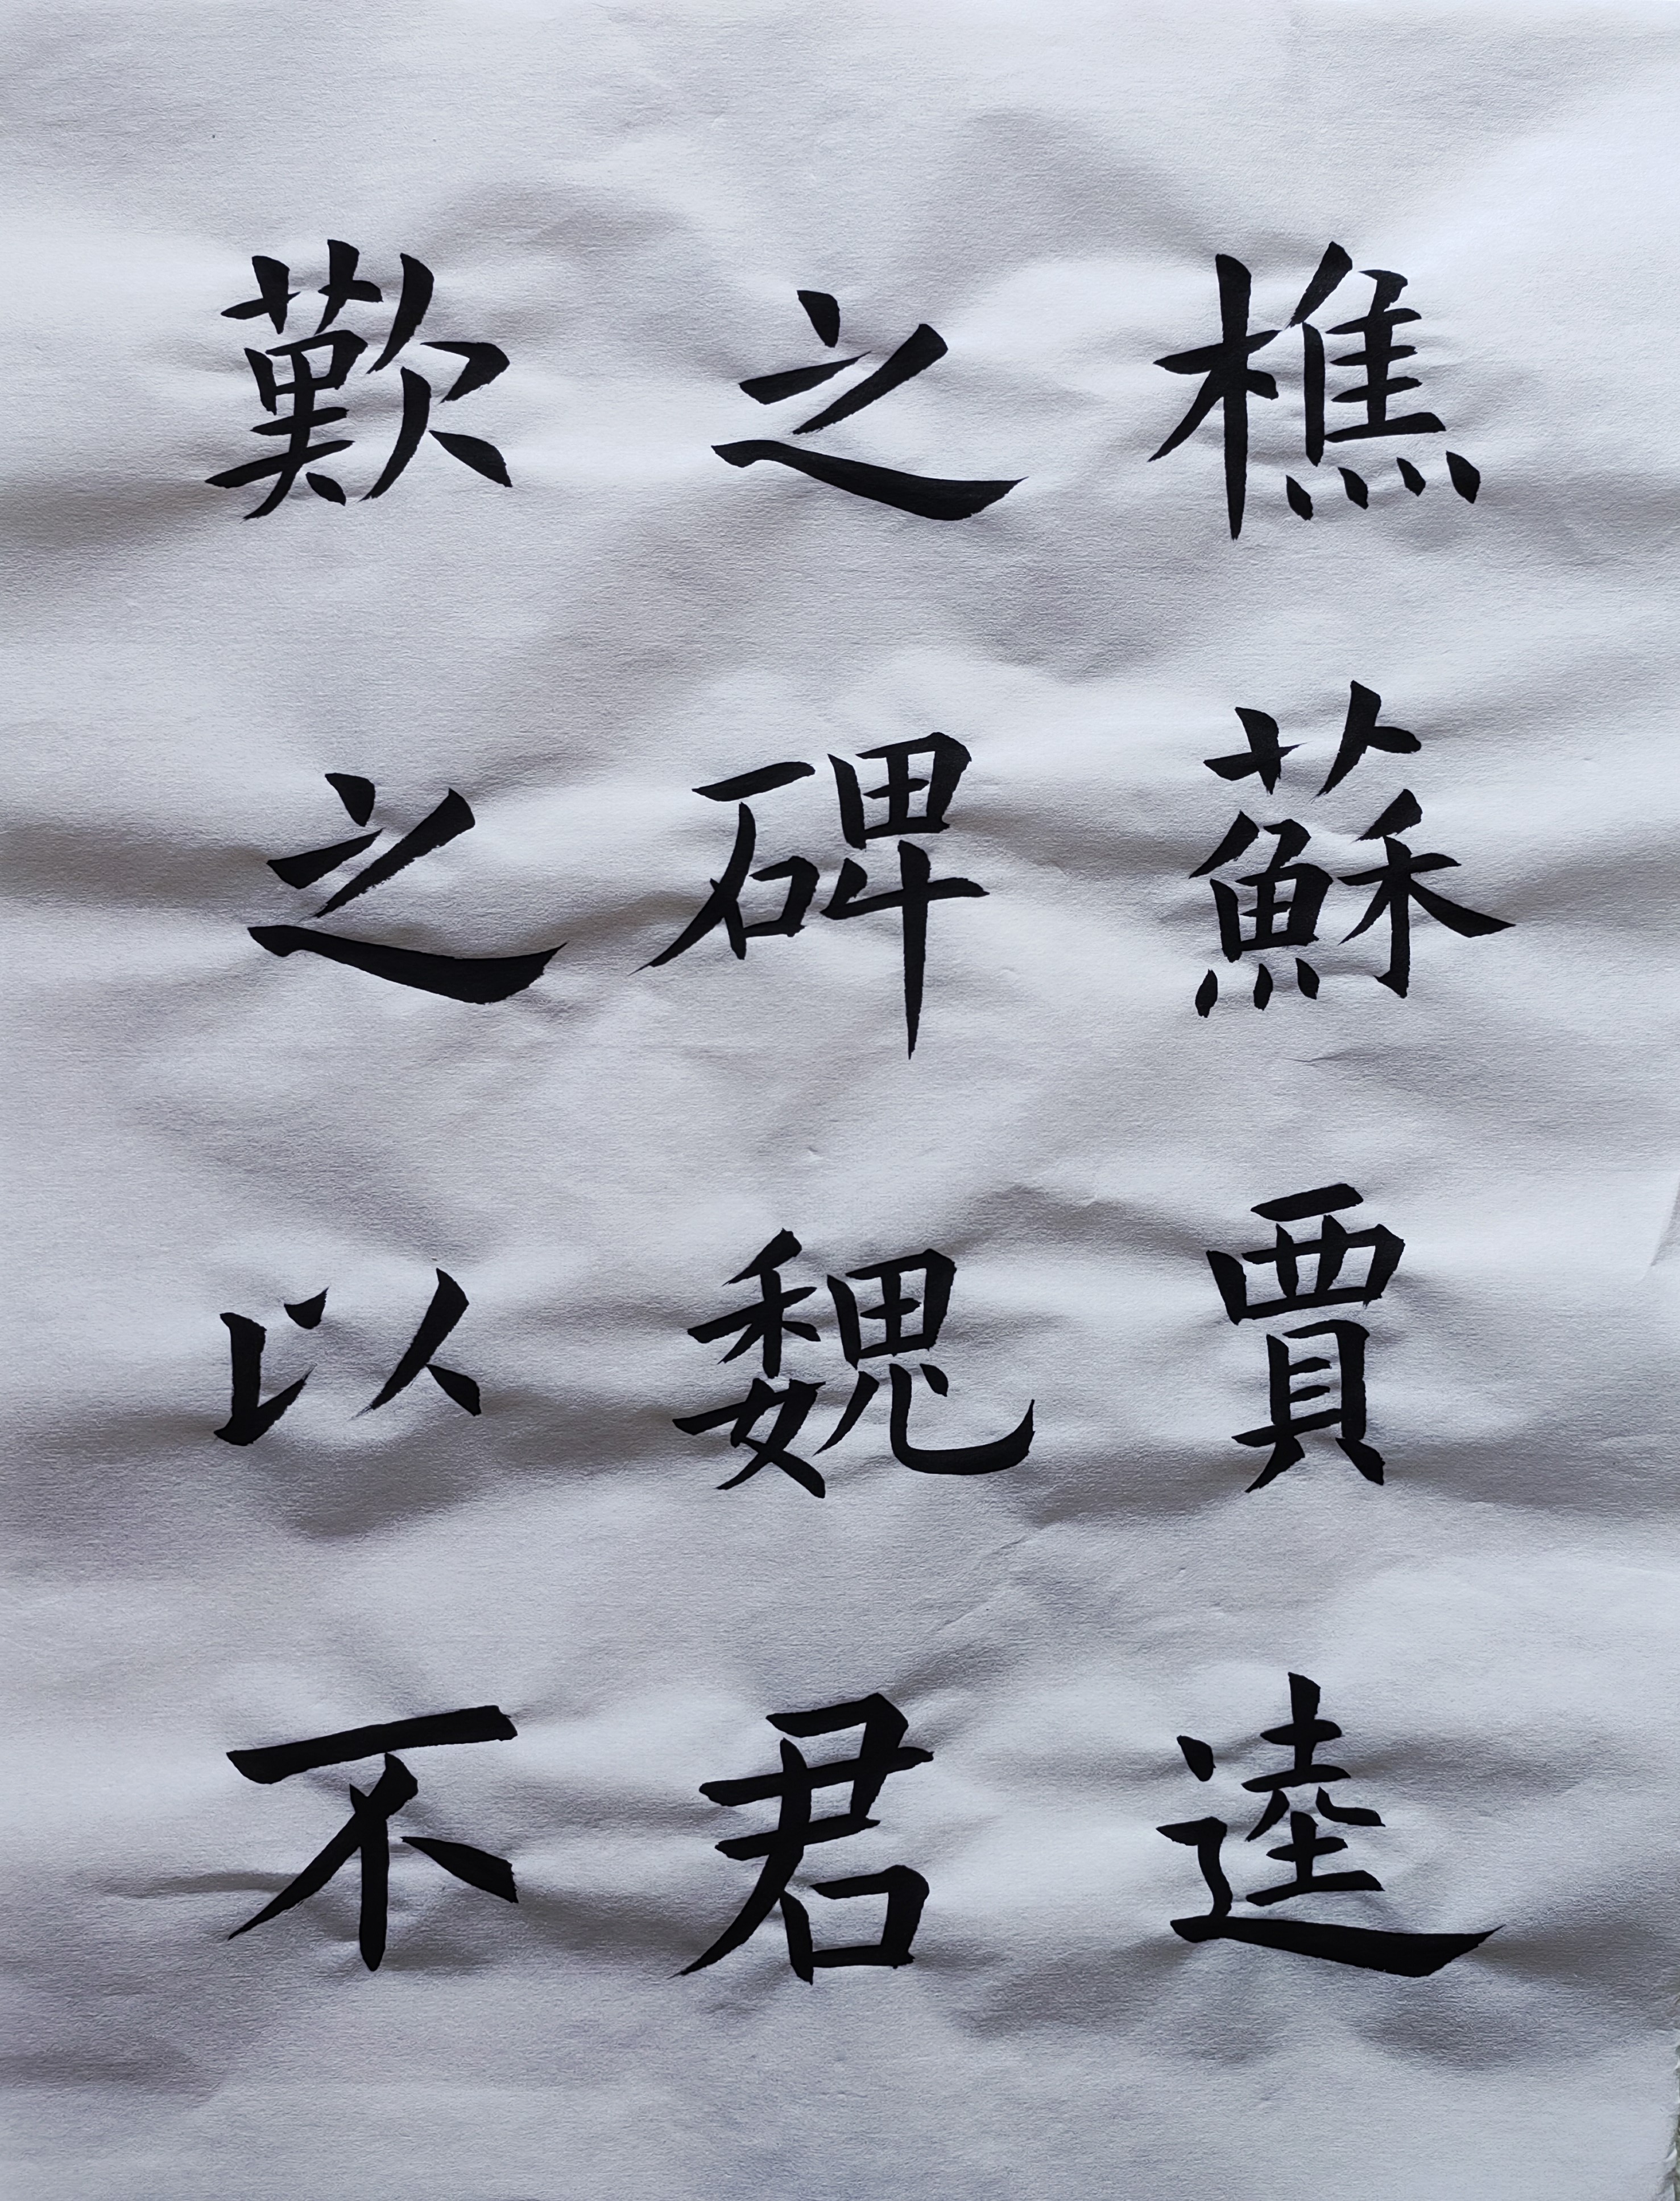 樵蘇賈逵
之碑魏君
歎之以不